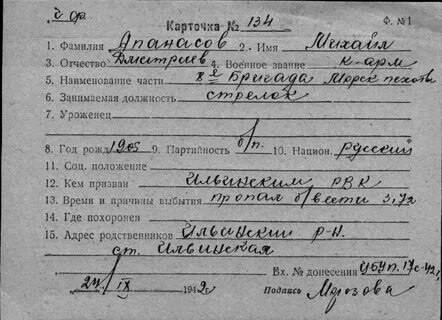 Карточка № 134
Ф. № 1
1. Фамилия Апанасов 2. Имя Михаил
3. Отчество Дмитриев 4. Военное звание к-арм
5. Наименование части 8я Бригада Морск пехоты
6. Занимаемая должность стрелок
7. Уроженец
8. Год рожд 1905 9. Партийность б/п. 10. Национ. Русский
11. Соц. положение
12. Кем призван Ильинским РВК
13. Время и причины выбытия пропал б/вести 3,7
14. Где похоронен
15. Адрес родственников Ильинский р-н.
ст. Ильинская
24/IX 1942г. Вх. № донесения
Подпись Морозова